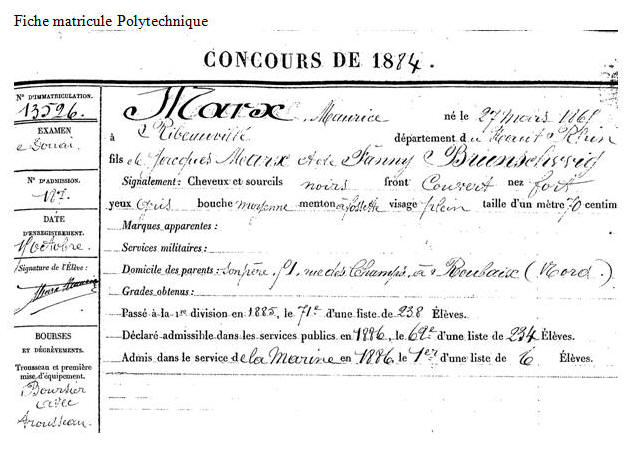 Fiche matricule Polytechnique
CONCOURS DE 1884.
N° D'IMMATRICULATION.
13526.
EXAMEN
de Douai.
N° D'ADMISSION.
187.
DATE
D'ENREGISTREMENT.
Octobre.
Signature de l'Élève :
Marx Maurice
BOURSES
ET DÉGRÈVEMENTS.
Trousseau et première
mise d'équipement.
Boursier
avec
trousseau.
Marx Maurice né le 27 Mars 186
à Ribeauvillé département du Haut Rhin
fils de Jacques Marx et de Fanny Brunschwig
Signalement : Cheveux et sourcils noirs front Couvert nez fort
yeux gris bouche moyenne menton à fossette visage plein taille d'un mètre 70 centim
Marques apparentes :
Services militaires :
Domicile des parents : Son père, rue des Champs, à Roubaix (Nord).
Grades obtenus :
Passé à la 1re division en 1885, le 71e d'une liste de 238 Élèves.
Déclaré admissible dans les services publics en 1886, le 62e d'une liste de 234 Élèves.
Admis dans le service de la Marine en 1886, le 1er d'une liste de 6 Élèves.